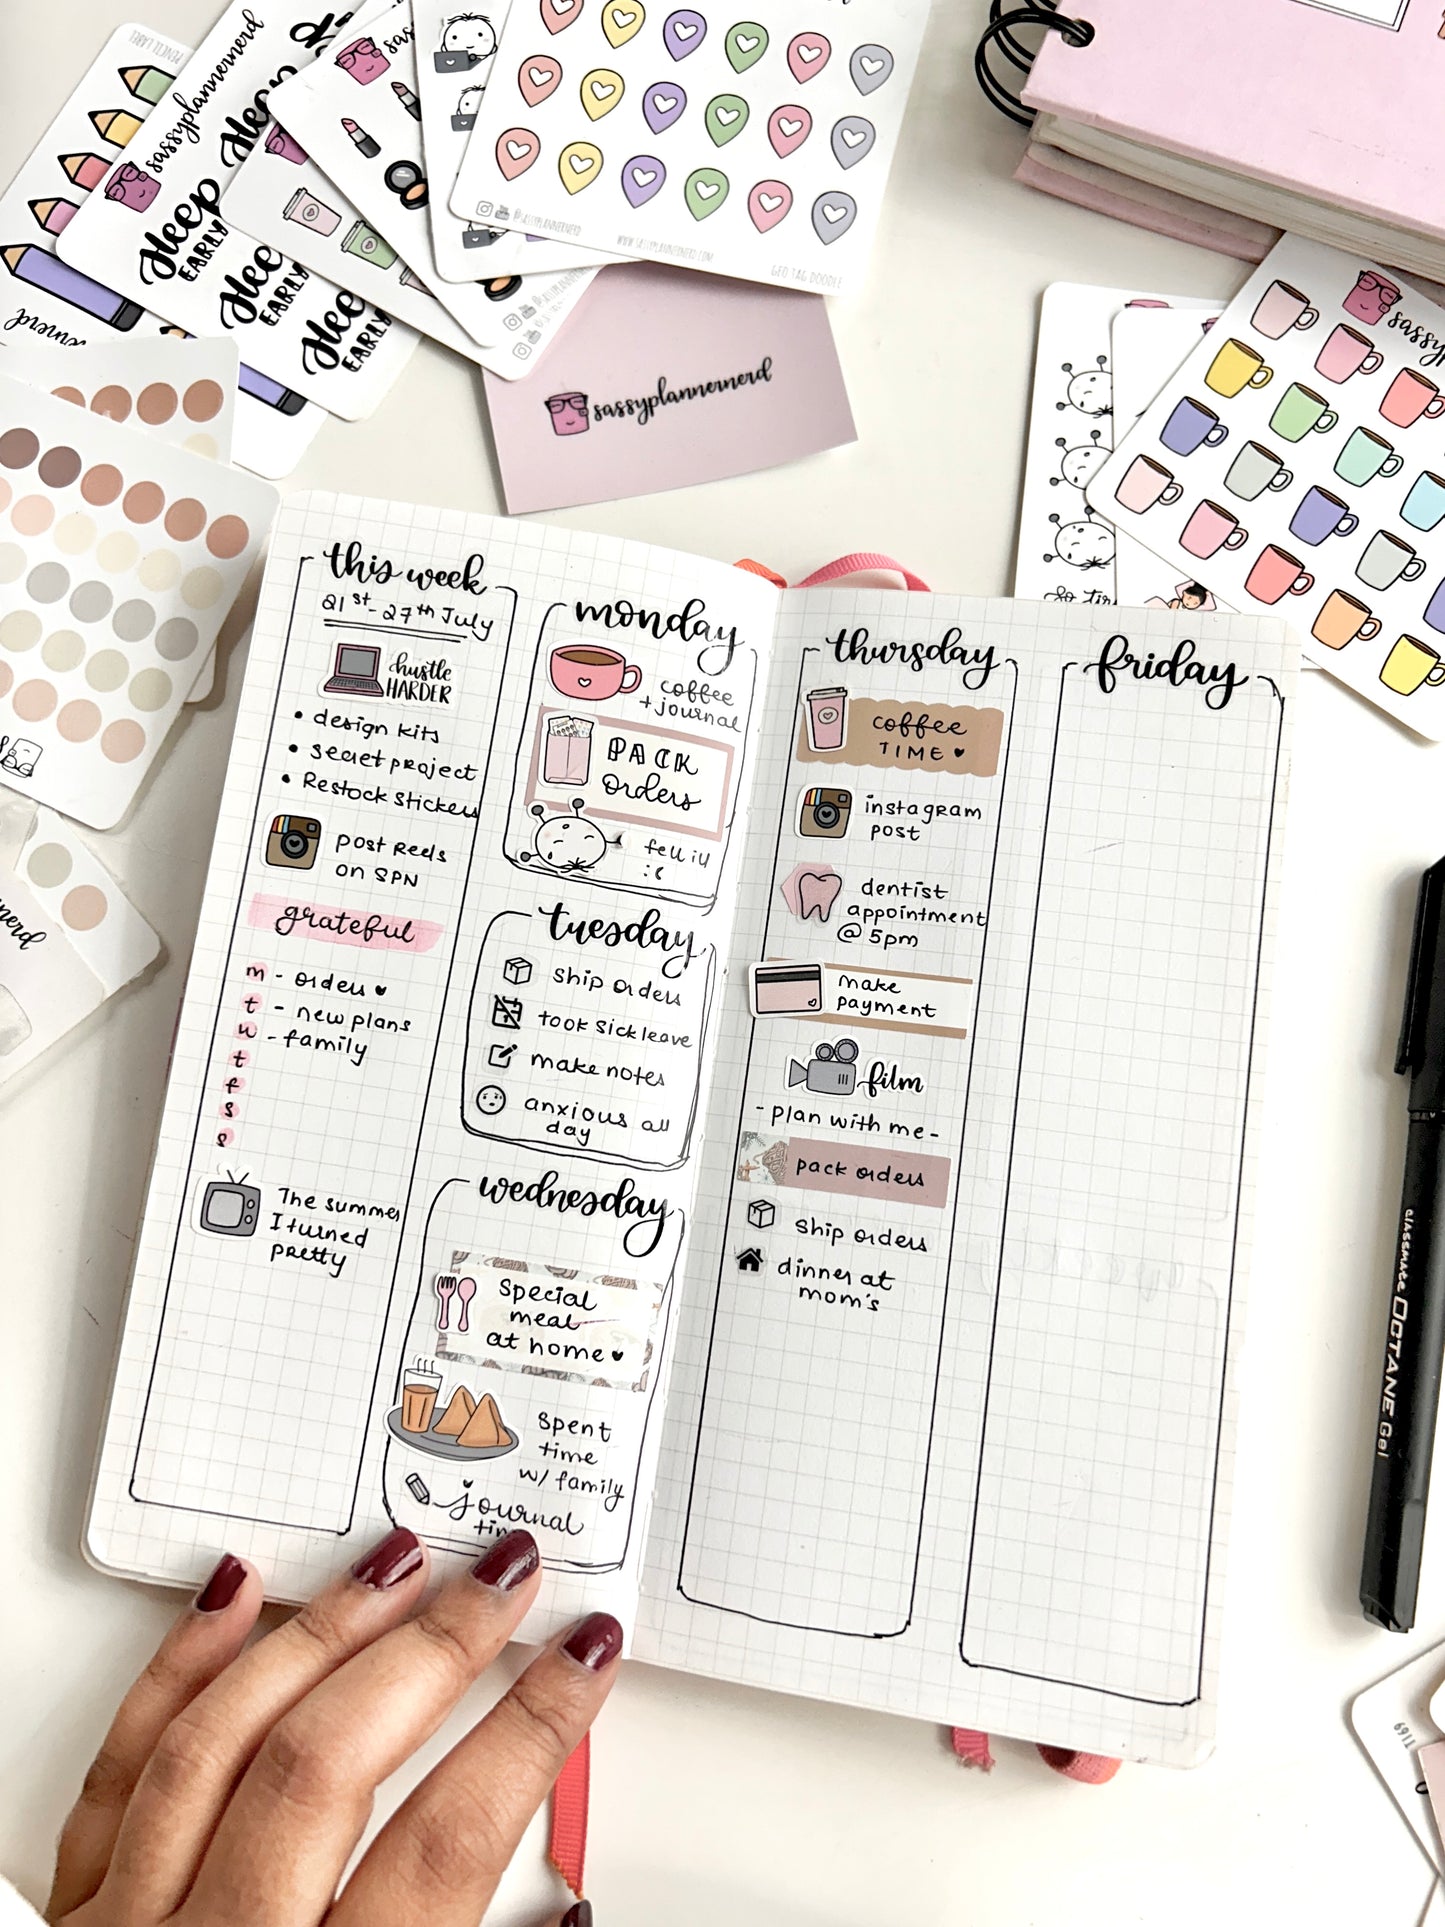 PENCIL LABEL
sassyplannernerd
Sleep
EARLY
EARLY
EARLY
@SASSYPLANNERNERD
WWW.SASSYPLANNERNERD.COM
GEO TAG DOODLE
sassyplannernerd
this week
21st - 27th July
hustle
HARDER
• design kits
• secret project
• Restock stickers
post Reels
on SPN
grateful
m - orders
t - new plans
w - family
t
f
s
s
The summer
I turned
pretty
monday
coffee
+ journal
PACK
orders
fell ill
:(
tuesday
ship orders
took sick leave
make notes
anxious all
day
wednesday
special
meal
at home
spent
time
w/ family
journal
thursday
coffee
TIME
instagram
post
dentist
appointment
@ 5pm
make
payment
film
- plan with me -
pack orders
ship orders
dinner at
mom's
friday
classmate OCTANE Gel